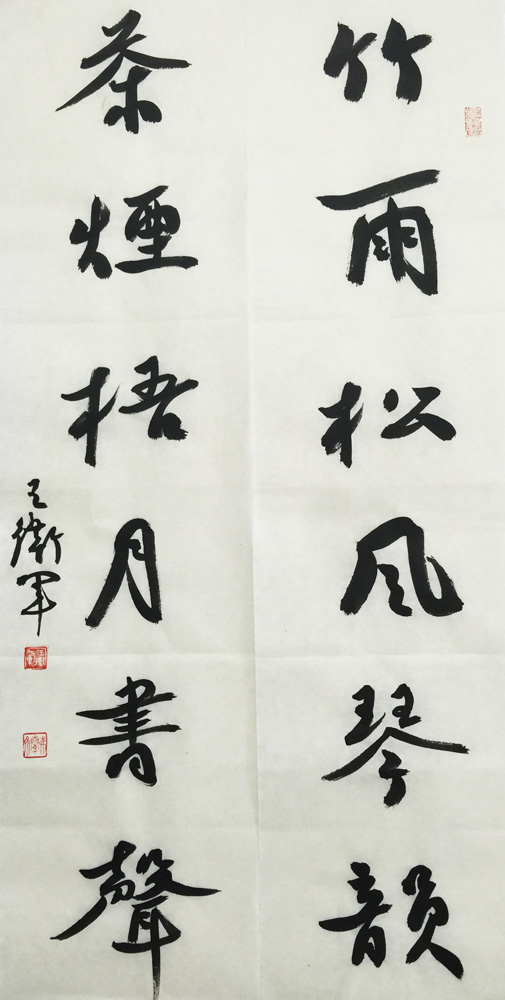 竹雨松风琴韻
茶煙梧月書聲
王衛軍